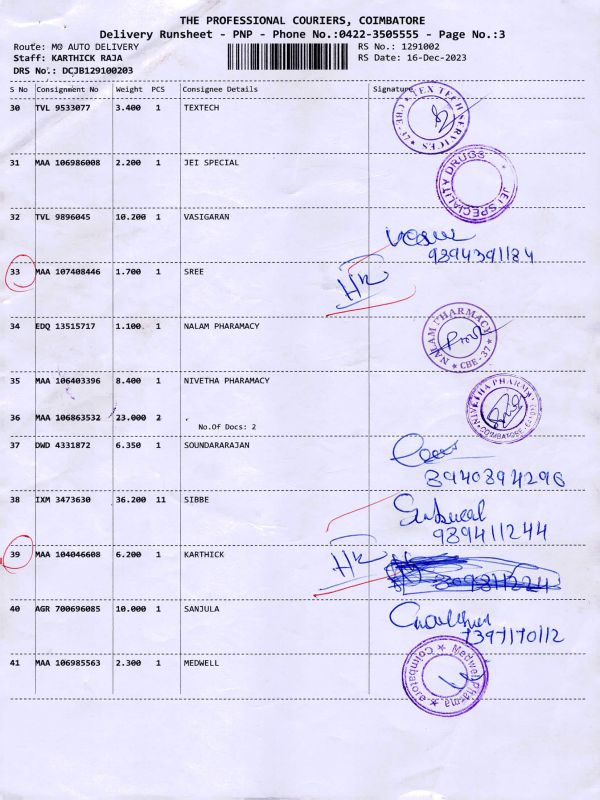 THE PROFESSIONAL COURIERS, COIMBATORE
Delivery Runsheet - PNP - Phone No.:0422-3505555 - Page No.:3
Route: M0 AUTO DELIVERY RS No.: 1291002
Staff: KARTHICK RAJA RS Date: 16-Dec-2023
DRS No.: DCJB129100203
S No Consignment No Weight PCS Consignee Details Signature
30 TVL 9533077 3.400 1 TEXTECH TEX TECH SERVICES CBE-27
31 MAA 106986008 2.200 1 JEI SPECIAL JEI SPECIALITY DRUGS
32 TVL 9896045 10.200 1 VASIGARAN
9894391184
33 MAA 107408446 1.700 1 SREE
34 EDQ 13515717 1.100 1 NALAM PHARAMACY NALAM PHARMACY CBE-37
35 MAA 106403396 8.400 1 NIVETHA PHARAMACY NIVETHA PHARMA COIMBATORE
36 MAA 106863532 23.000 2
No.Of Docs: 2
37 DWD 4331872 6.350 1 SOUNDARARAJAN
8940894296
38 IXM 3473630 36.200 11 SIBBE
989411244
39 MAA 104046608 6.200 1 KARTHICK
40 AGR 700696085 10.000 1 SANJULA
7397170112
41 MAA 106985563 2.300 1 MEDWELL Medwell Pharma Coimbatore